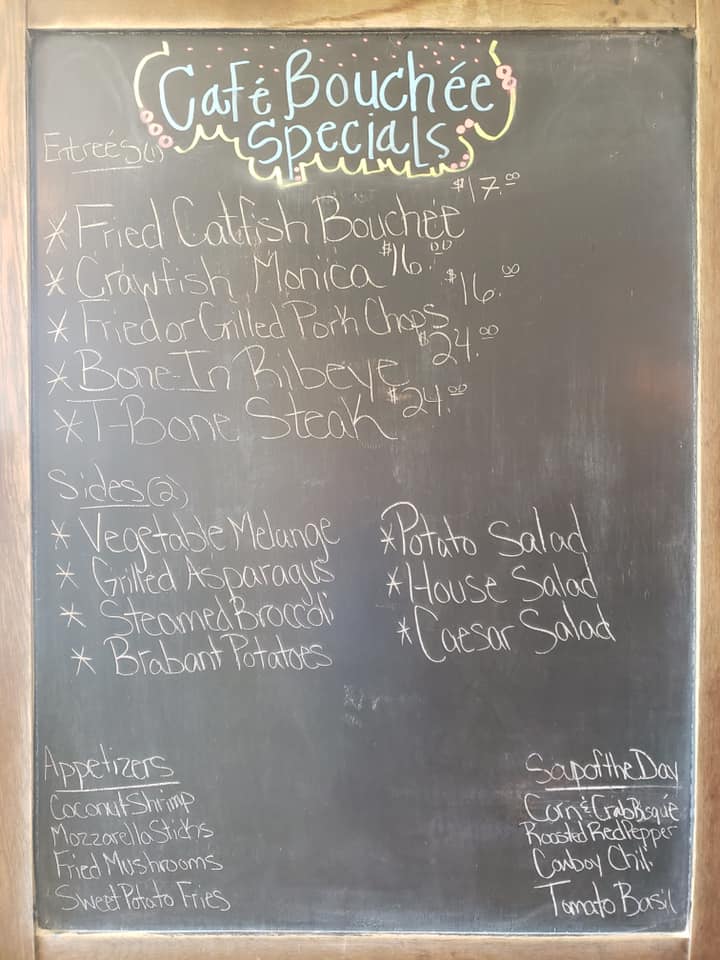 Café Bouchée
Specials
Entreés(1)
* Fried Catfish Bouchée $17.00
* Crawfish Monica $16.00
* Fried or Grilled Pork Chops $16.00
* Bone-In Ribeye $24.00
* T-Bone Steak $24.00
Sides(2)
* Vegetable Melange
* Grilled Asparagus
* Steamed Broccoli
* Brabant Potatoes
* Potato Salad
* House Salad
* Caesar Salad
Appetizers
Coconut Shrimp
Mozzarella Sticks
Fried Mushrooms
Sweet Potato Fries
Soup of the Day
Corn & Crab Bisque
Roasted Red Pepper
Cowboy Chili
Tomato Basil